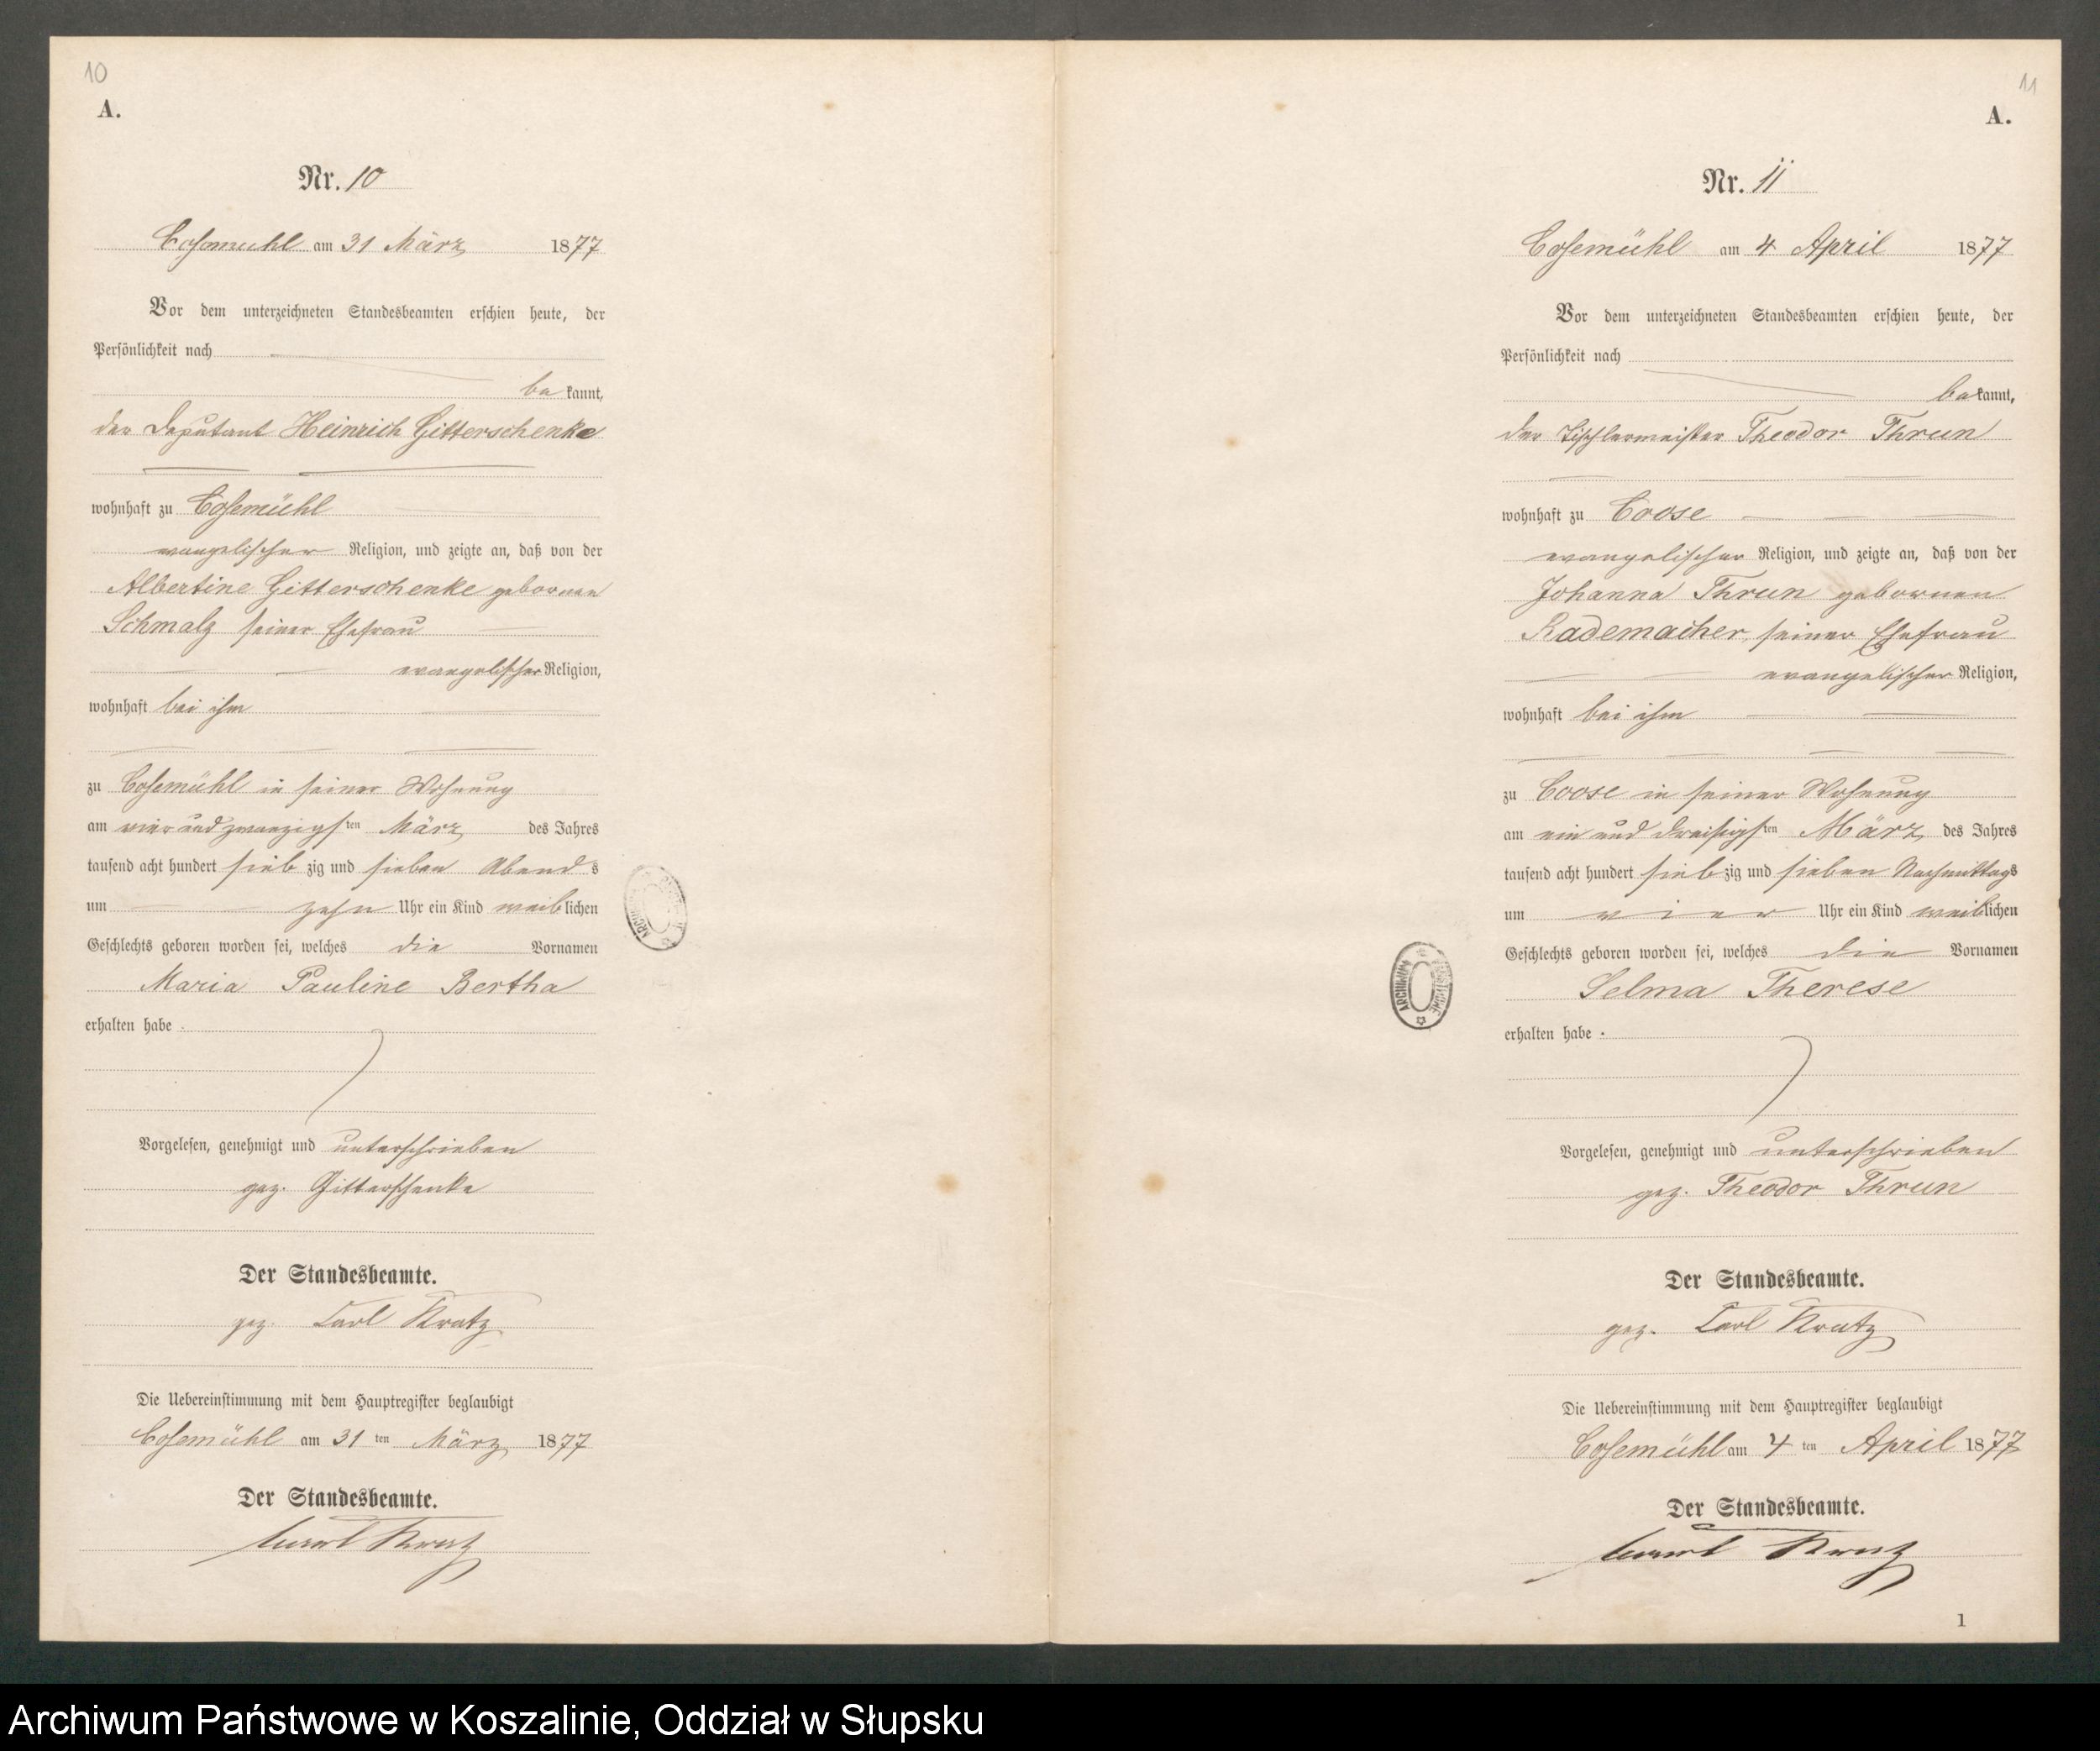 10
A.
Nr. 10
Cosemuhl am 31 März 1877
Vor dem unterzeichneten Standesbeamten erschien heute, der
Persönlichkeit nach
be kannt,
der Deputant Heinrich Gitterschenke
wohnhaft zu Cosemühl
evangelischer Religion, und zeigte an, daß von der
Albertine Gitterschenke gebornen
Schmalz seiner Ehefrau
evangelischer Religion,
wohnhaft bei ihm
zu Cosemühl in seiner Wohnung
am vier und zwanzigsten März des Jahres
tausend acht hundert sieb zig und sieben Abend s
um zehn Uhr ein Kind weiblichen
Geschlechts geboren worden sei, welches die Vornamen
Maria Pauline Bertha
erhalten habe.
Vorgelesen, genehmigt und unterschrieben
gez. Gitterschenke
Der Standesbeamte.
gez. Carl Kratz
Die Uebereinstimmung mit dem Hauptregister beglaubigt
Cosemühl am 31 ten März 1877
Der Standesbeamte.
Carl Kratz
11
A.
Nr. 11
Cosemühl am 4 April 1877
Vor dem unterzeichneten Standesbeamten erschien heute, der
Persönlichkeit nach
bekannt,
der Tischlermeister Theodor Thrun
wohnhaft zu Coose
evangelischer Religion, und zeigte an, daß von der
Johanna Thrun gebornen
Rademacher, seiner Ehefrau
evangelischer Religion,
wohnhaft bei ihm
zu Coose in seiner Wohnung
am ein und dreisigsten März des Jahres
tausend acht hundert siebzig und sieben Nachmittags
um vier Uhr ein Kind weiblichen
Geschlechts geboren worden sei, welches die Vornamen
Selma Therese
erhalten habe.
ARCHIWUM
Vorgelesen, genehmigt und unterschrieben
gez. Theodor Thrun
Der Standesbeamte.
gez. Carl Kratz
Die Uebereinstimmung mit dem Hauptregister beglaubigt
Cosemühl am 4 ten April 1877
Der Standesbeamte.
Carl Kratz
1
Archiwum Państwowe w Koszalinie, Oddział w Słupsku